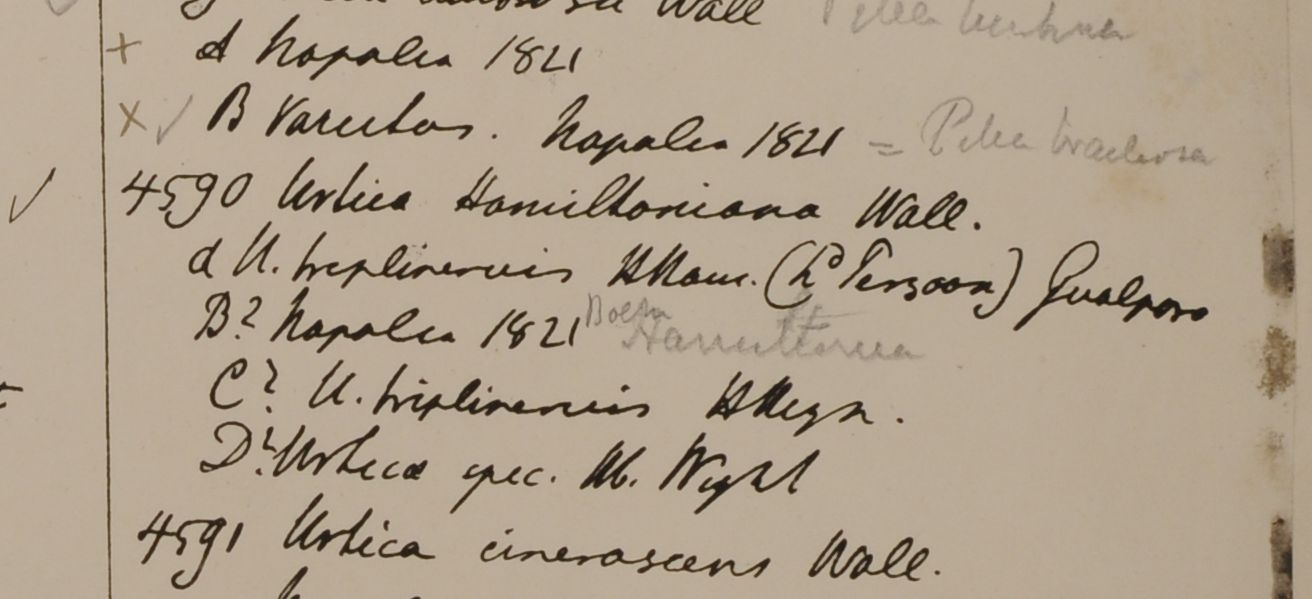 Wall
+ d Napalia 1821
× ✓ B Varietas. Napalia 1821 = Pilea bracteosa
✓ 4590 Urtica Hamiltoniana Wall.
d U. triplinervis HHam. (h^b Persoon) Gualpara
B? Napalia 1821 Boehm Hamiltoniana
C? U. triplinervis HHeyn.
D? Urtica spec. Hb. Wight
4591 Urtica cinerascens Wall.